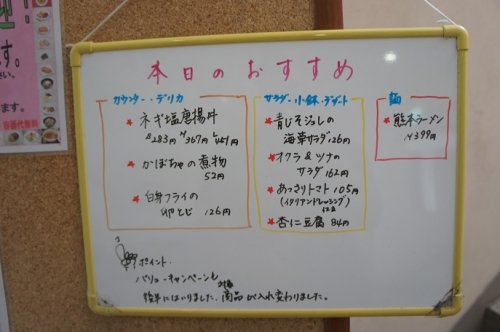 本日のおすすめ
カウンター・デリカ
★ ネギ塩唐揚丼
S283円 M367円 L451円
★ かぼちゃの煮物
52円
★ 白身フライの
卵とじ 126円
サラダ・小鉢・デザート
★ 青じそジュレの
海藻サラダ 126円
★ オクラ&ツナの
サラダ 162円
★ あっさりトマト 105円
(イタリアンドレッシング)
★ 杏仁豆腐 84円
麺
★ 熊本ラーメン
M399円
ポイント・
バリューキャンペーンも
後半にはいりました。対象商品が入れ変わりました。
ます。
容器代無料